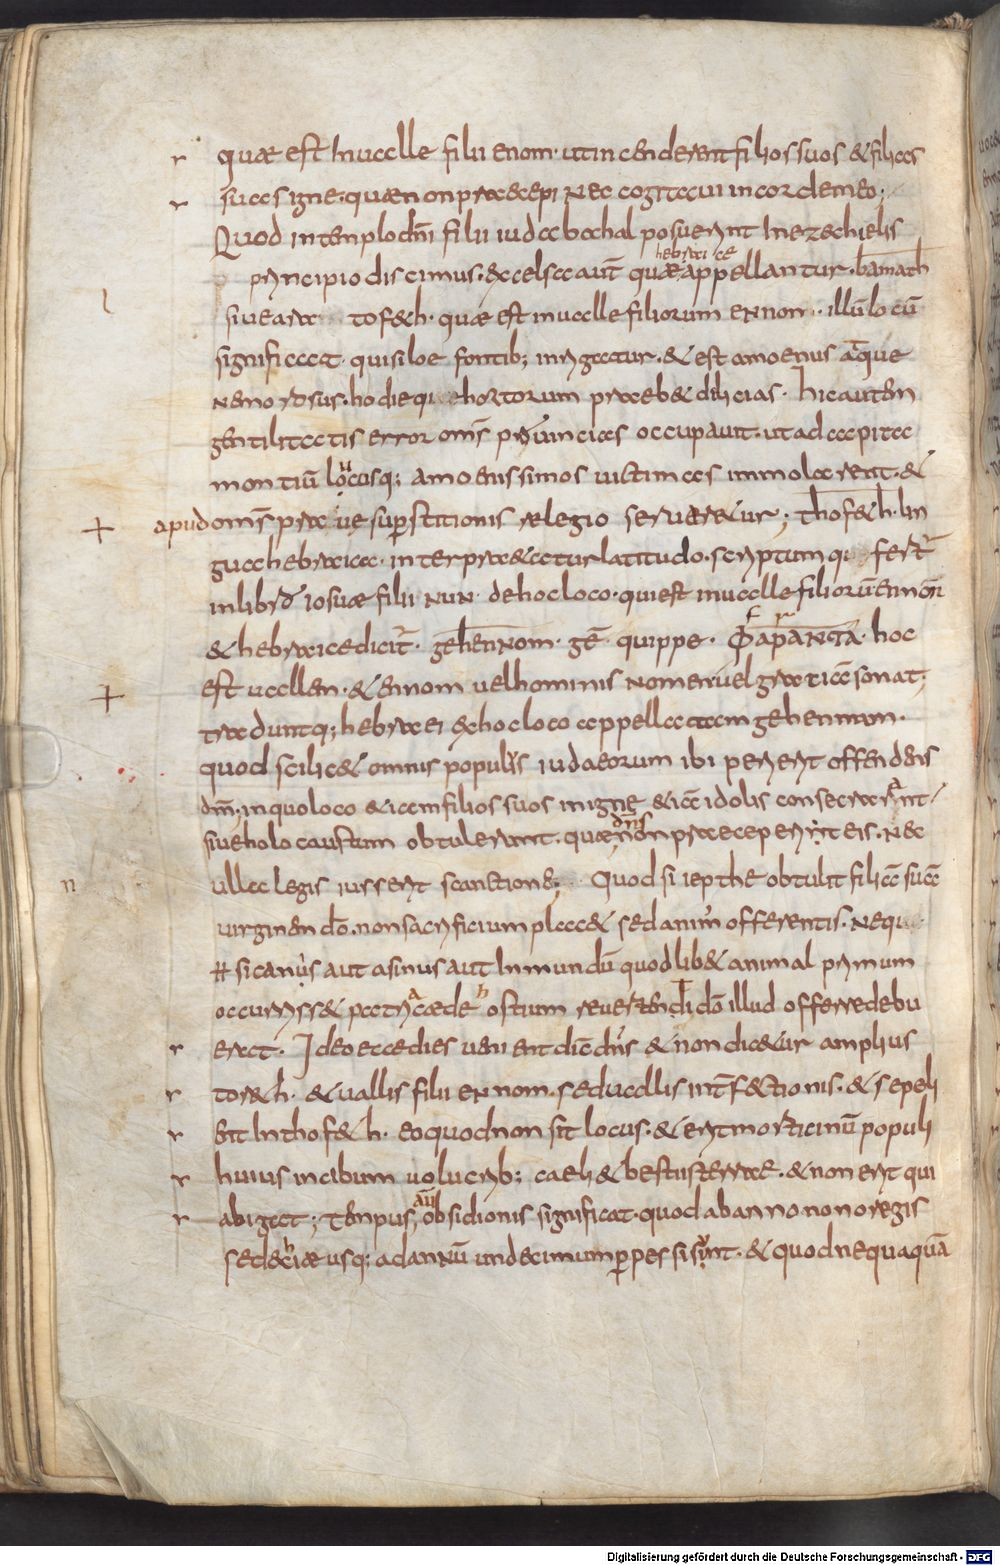 quae est in valle filii enom· ut incenderent filios suos & filias
suas igne· quae non praecepi nec cogitavi in corde meo;
Quod in templo dn̄i filii iuda bahal posuerunt in ezechielis
hebraice
principio discimus· excelsa aut̄ quae appellantur· bamath
siue arae tof&h· quae est in ualle filiorum ennon· illū locū
significat· qui siloe fontib; inrigatur· & est amoenus atque
nemorosus· hodieque hortorum praeb& dilicias· hic autem
gentilitatis error om̄s prouincias occupauit· ut ad capita
montiū lucusq; amoenissimos uictimas immolarent· &
apud om̄s prauae superstitionis relegio seruar&ur; thof&h· lin
gua hebraica· interpraetatur latitudo· scriptumque fert̄
in libro iosuae filii nun· de hoc loco· qui est in ualle filiorū ennom
& hebraice dicit̄· gehennom· ge· quippe· φαρανγα· hoc
est uallem· & ennom uel hominis nomen uel gratiā sonat;
traduntq; hebraei ex hoc loco appellatam gehennam·
quod scilic& omnis populus iudaeorum ibi perierit offendens
dm̄; in quo loco & iam filios suos in igne & iā idolis consecrarint
dn̄s
siue holocaustum obtulerunt· quae non praeceperit eis· nec
ulla legis iusserit sanctione; Quod si iepthe obtulit filiā suā
uirginem do̅· non sacrificium plac& sed animus offerentis· neque
si canis aut asinus aut inmundū quodlib& animal primum
occurriss& patri caede hostium reuertendi do̅ illud offerre debu
erat· Ideo ecce dies uenient dic̄ dn̄s & non dic&ur amplius
tof&h· & uallis filii ennom· sed uallis interf&tionis· & sepeli
ent in thof&h· eo quod non sit locus· & erit morticinū populi
huius in cibum uolucrib; caeli & bestiis terrae· & non erit qui
aut̄
abigat; Tempus obsidionis significat· quod ab anno nono regis
sedechiae usq; ad annū undecimum perpessi sunt· & quod nequaquā
Digitalisierung gefördert durch die Deutsche Forschungsgemeinschaft - DFG